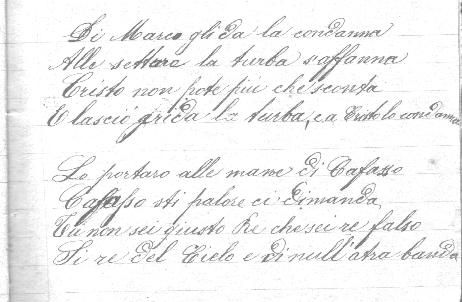 Di Marco gli da la condanna
Alle settare la turba s'affanna
Cristo non pote piu che sconta
E lasciò grida la turba, e a Cristo lo condanna
Lo portaro alle mane di Cafasso
Cafasso sti palore ci dimanda,
Tu non sei giusto Re che sei re falso
Si re del Cielo e di null'atra banda